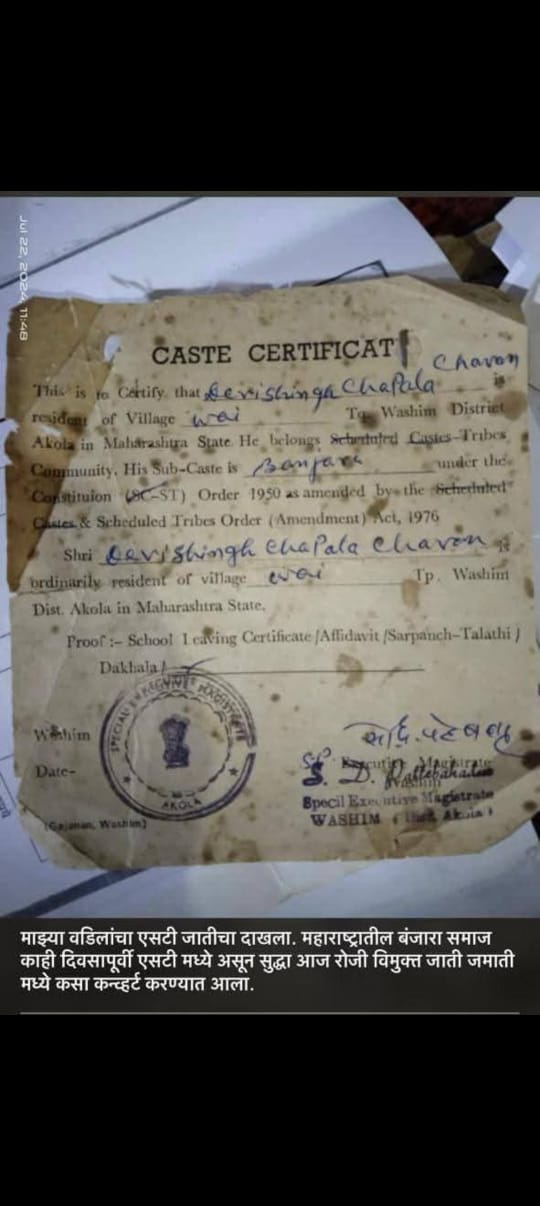 Jul 22, 2024, 11:48
CASTE CERTIFICAT
Chavon
This is to Certify that Devishingh Chapala is
resident of Village wai Tq. Washim District
Akola in Maharashtra State. He belongs Scheduled Castes-Tribes
Community. His Sub-Caste is Banjara under the
Constituion (SC-ST) Order 1950 as amended by the Scheduled
Castes & Scheduled Tribes Order (Amendment) Act, 1976
Shri Devishingh Chapala Chavon is
ordinarily resident of village wai Tp. Washim
Dist. Akola in Maharashtra State.
Proof :- School Leaving Certificate /Affidavit /Sarpanch-Talathi /
Dakhala /
SPECIAL EXECUTIVE MAGISTRATE
AKOLA
Washim
Date-
Executive Magistrate
Washim
S. D.
Specil Executive Magistrate
WASHIM ( Dist. Akola )
(Gajanan, Washim)
माझ्या वडिलांचा एसटी जातीचा दाखला. महाराष्ट्रातील बंजारा समाज
काही दिवसापूर्वी एसटी मध्ये असून सुद्धा आज रोजी विमुक्त जाती जमाती
मध्ये कसा कन्व्हर्ट करण्यात आला.